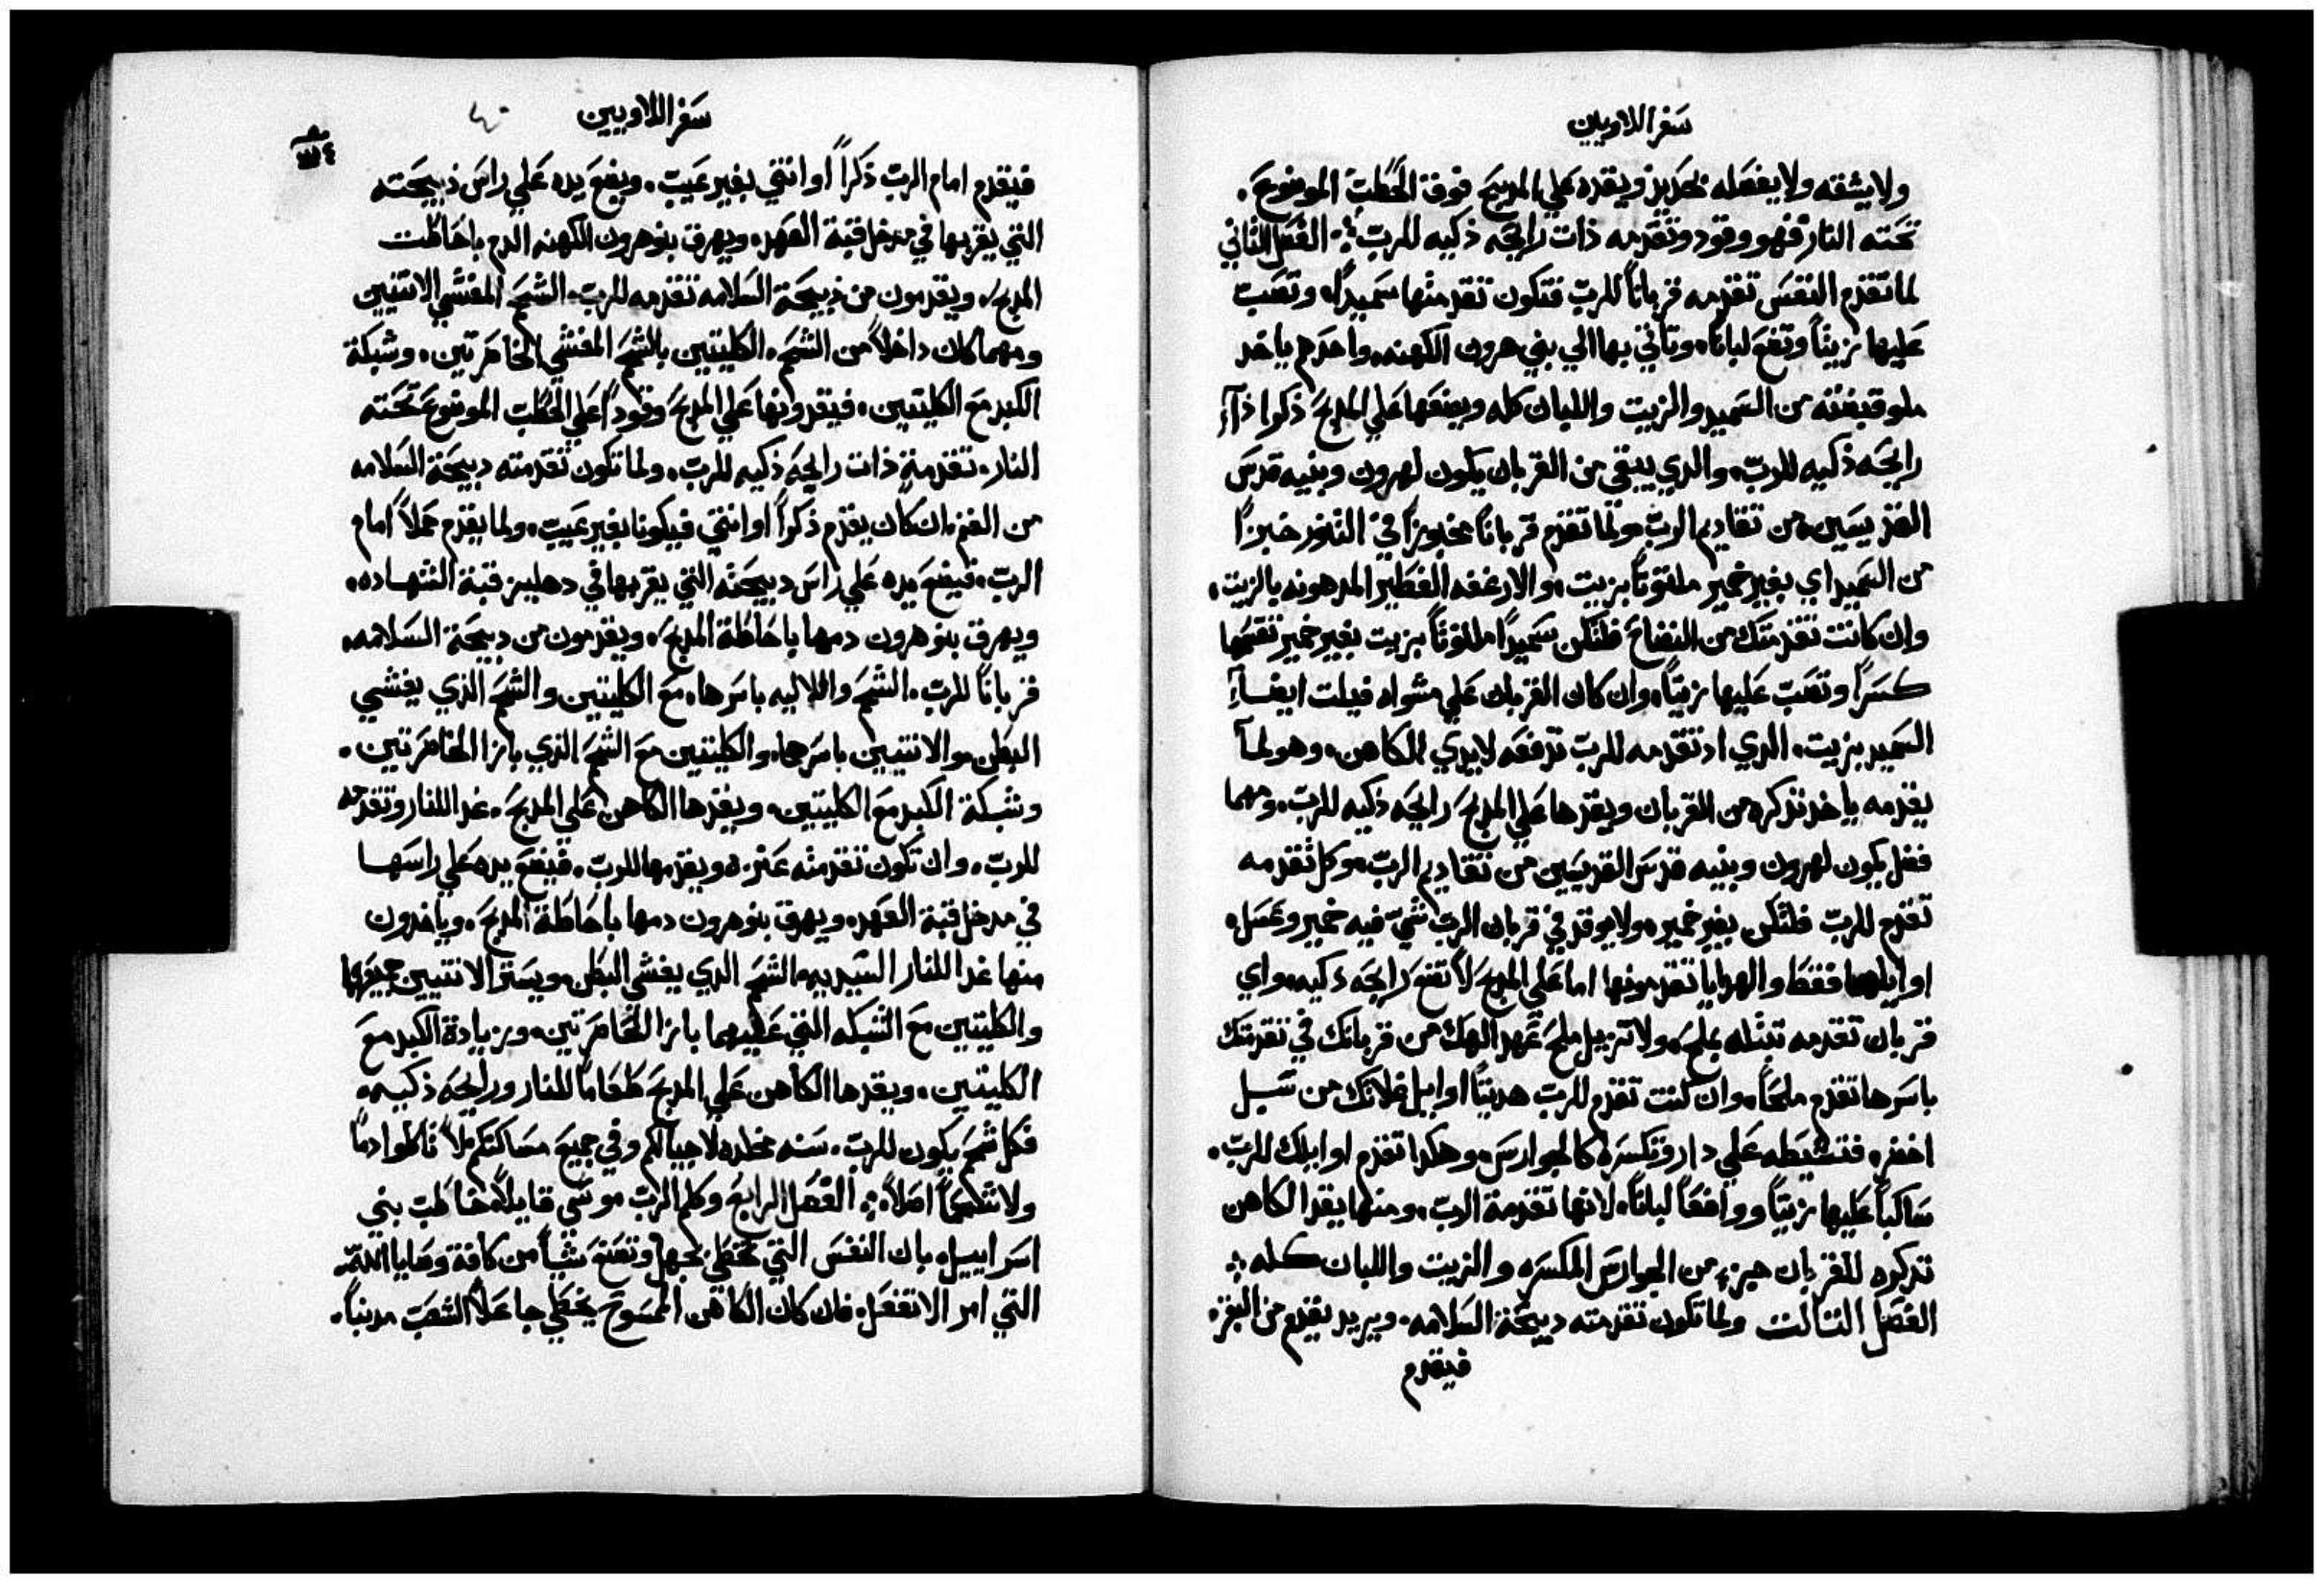 سفر اللاويين
ولا يشقه ولا يفصله بحديد ويقده علي المدبح فوق الحطب الموضوع.
تحته النار فهو وقود وتقدمه ذات رايحه ذكيه للرب؞ الفصل الثاني
لما تقدم النفس تقدمه قرباناً للرب فتكون تقدمتها سميداً، وتصب
عليها زيتاً وتضع لباناً، وتاتي بها الي بني هرون الكهنه، واحدهم ياخد
ملو قبضته من السميد والزيت واللبان كله ويضعها علي المدبح ذكرا ذات
رايحه ذكيه للرب، والدي يبقي من القربان يكون لهرون وبنيه قدس
القديسين من تقاديم الرب، ولما تقدم قرباناً مخبوزاً في التنور خبزاً
من السميد اي بغير خمير ملتوتاً بزيت، والارغفه الفطير المدهونه بالزيت،
وان كانت تقدمتك من الطاجن فلتكن سميداً ملتوتاً بزيت بغير خمير تقسمها
كسراً وتصب عليها زيتاً، وان كان القربان علي مشواه فيلت ايضاً
السميد بزيت، الدي اد تقدمه للرب تدفعه لايدي الكاهن، وهو لما
يقدمه ياخد تدكره من القربان ويقدها علي المدبح رايحه ذكيه للرب، ومهما
فضل يكون لهرون وبنيه قدس القديسين من تقاديم الرب، وكل تقدمه
تقدم للرب فلتكن بغير خمير، ولا يوقد في قربان الرب شي فيه خمير وعسل،
اوايلهما فقط والهدايا تقدمونها اما علي المدبح لا تضع رايحه ذكيه، واي
قربان تقدمه تبتله بملح، ولا تزيل ملح عهد الهك من قربانك في تقدمتك
باسرها تقدم ملحاً، وان كنت تقدم للرب هديتاً اوايل غلاتك من سبل
اخضر، فتشيطه علي نار وتكسره كالجوارس، وهكدا تقدم اوايلك للرب.
ساكباً عليها زيتاً وواضعاً لباناً، لانها تقدمة الرب، ومنها يقد الكاهن
تدكره للقربان جزء من الجوارس المكسره والزيت واللبان كله؞
الفصل التالت ولما تكون تقدمته دبيحة السلامه، ويريد يقدم من البقر،
فيقدم
سفر اللاويين
فيقدم امام الرب ذكراً او انتي بغير عيب، ويضع يده علي راس ذبيحته
التي يقربها في مدخل قبة العهد، ويهرق بنو هرون الكهنه الدم باحاطت
المدبح، ويقدمون من ذبيحة السلامه تقدمه للرب، الشحم المغشي الانتيين
ومهما كان داخلاً من الشحم، الكليتين بالشحم المغشي الخاصرتين، وشبكة
الكبد مع الكليتين، فيقدونها علي المدبح وقوداً علي الحطب الموضوع تحته
النار، تقدمة ذات رايحه ذكيه للرب، ولما تكون تقدمته دبيحة السلامه
من الغنم، ان كان يقدم ذكراً او انتي فيكونا بغير عيب، ولما يقدم حملاً امام
الرب، فيضع يده علي راس دبيحته التي يقربها في دهليز قبة الشهاده،
ويهرق بنو هرون دمها باحاطة المدبح، ويقدمون من دبيحة السلامه،
قرباناً للرب، الشحم والاليه باسرها، مع الكليتين والشحم الذي يغشي
البطن، والانتيين باسرها، والكليتين مع الشحم الذي بازا الخاصرتين.
وشبكة الكبد مع الكليتين، ويقدها الكاهن علي المدبح، غدا للنار وتقدمه
للرب، وان تكون تقدمته عنزه ويقدمها للرب، فيضع يده علي راسها
في مدخل قبة العهد، ويهرق بنو هرون دمها باحاطة المدبح، وياخدون
منها غدا للنار السيديه، الشحم الدي يغشي البطن، ويستر الانتيين جميعها
والكليتين مع الشبكه التي عليهما بازا الخاصرتين، وزيادة الكبد مع
الكليتين، ويقدها الكاهن علي المدبح طعاماً للنار ورايحه ذكيه،
فكل شحم يكون للرب، سنه مخلده لاجيالكم وفي جميع مساكنكم، لا تاكلوا دماً
ولا شحماً اصلاً؞ الفصل الرابع وكلم الرب موسي قايلاً، خاطب بني
اسراييل، بان النفس التي تخطي بجهل وتصنع شياً من كافة وصايا الله
التي امر الا تفعل، فان كان الكاهن الممسوح يخطي جاعلاً الشعب مدنباً.